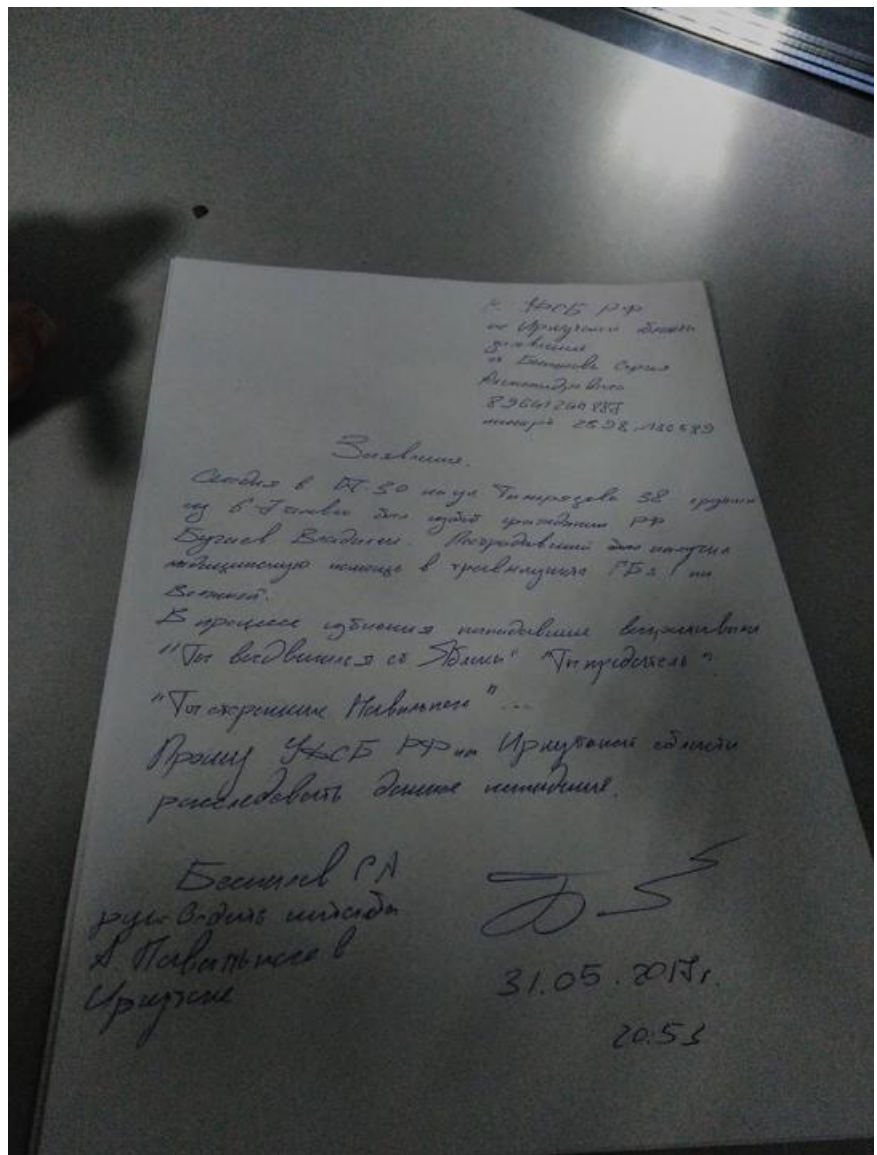 К УФСБ РФ
по Иркутской области
заявление
от Беспалова Сергея
8964124
паспорт 2598
Заявление.
Сегодня в 17-30 на ул Тимирязева 38 группой
из 6 человек был избит гражданин РФ
Бугаев Владилен. Пострадавший получил
медицинскую помощь в травмпункте ГБ
В процессе избиения нападавшие выкрикивали
"Ты со Яблони" "Ты предатель"
"Ты сторонник Навального"...
Прошу УФСБ РФ по Иркутской области
расследовать данное нападение.
Беспалов СА
руководитель штаба
А Навального в
Иркутске
31.05.2017г.
20:53